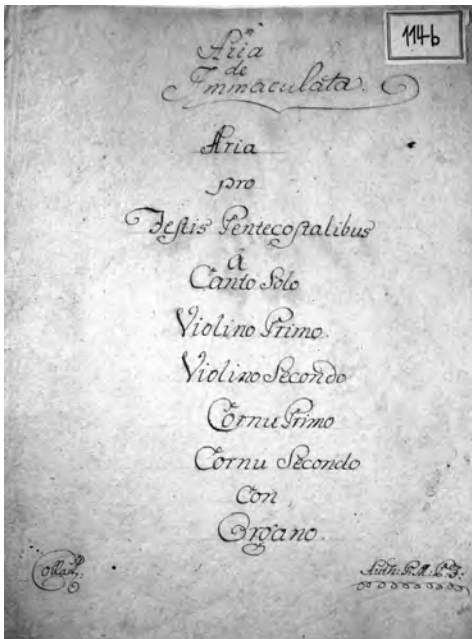 114b
Aria
de
Immaculata.
Aria
pro
Festis Pentecostalibus
à
Canto Solo
Violino Primo.
Violino Secondo
Cornu Primo
Cornu Secondo
Con
Organo.
Auth: